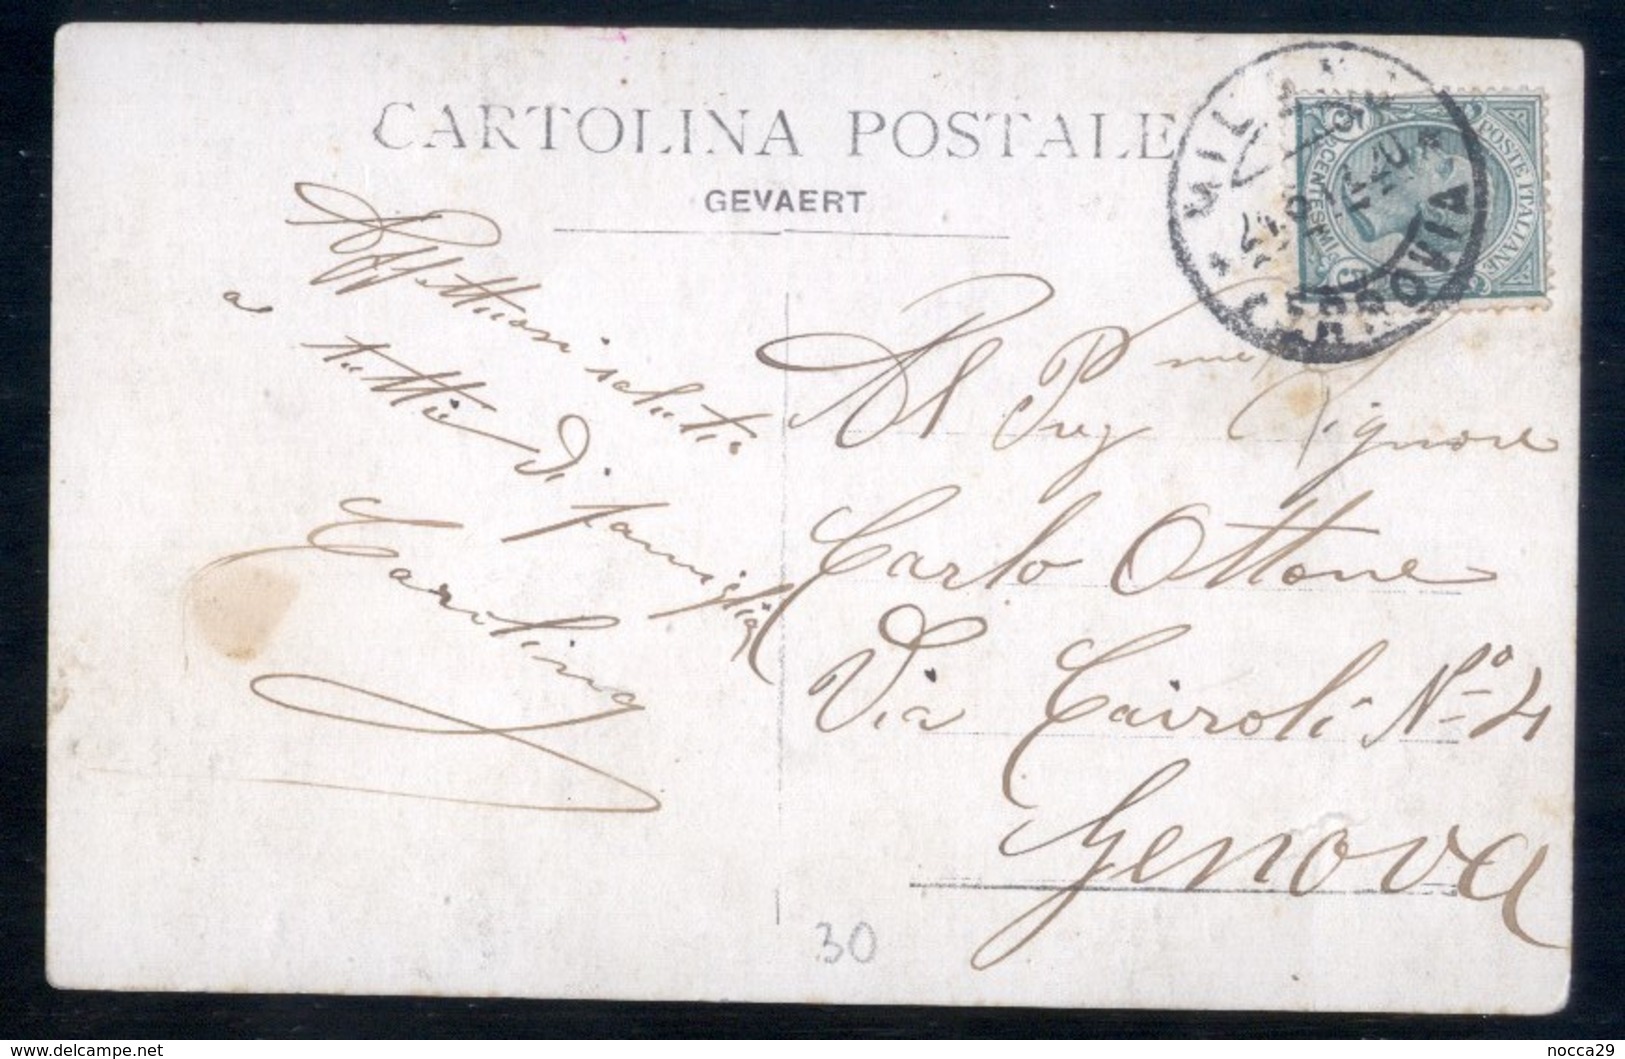 CARTOLINA POSTALE
GEVAERT
MILANO
FERROVIA
POSTE ITALIANE
CENTESIMI 5
Affettuosi saluti
a tutti di famiglia
Carolina
Al Preg.me Signore
Carlo Ottone
Via Cairoli N.º 4
Genova
30
www.delcampe.net
nocca29